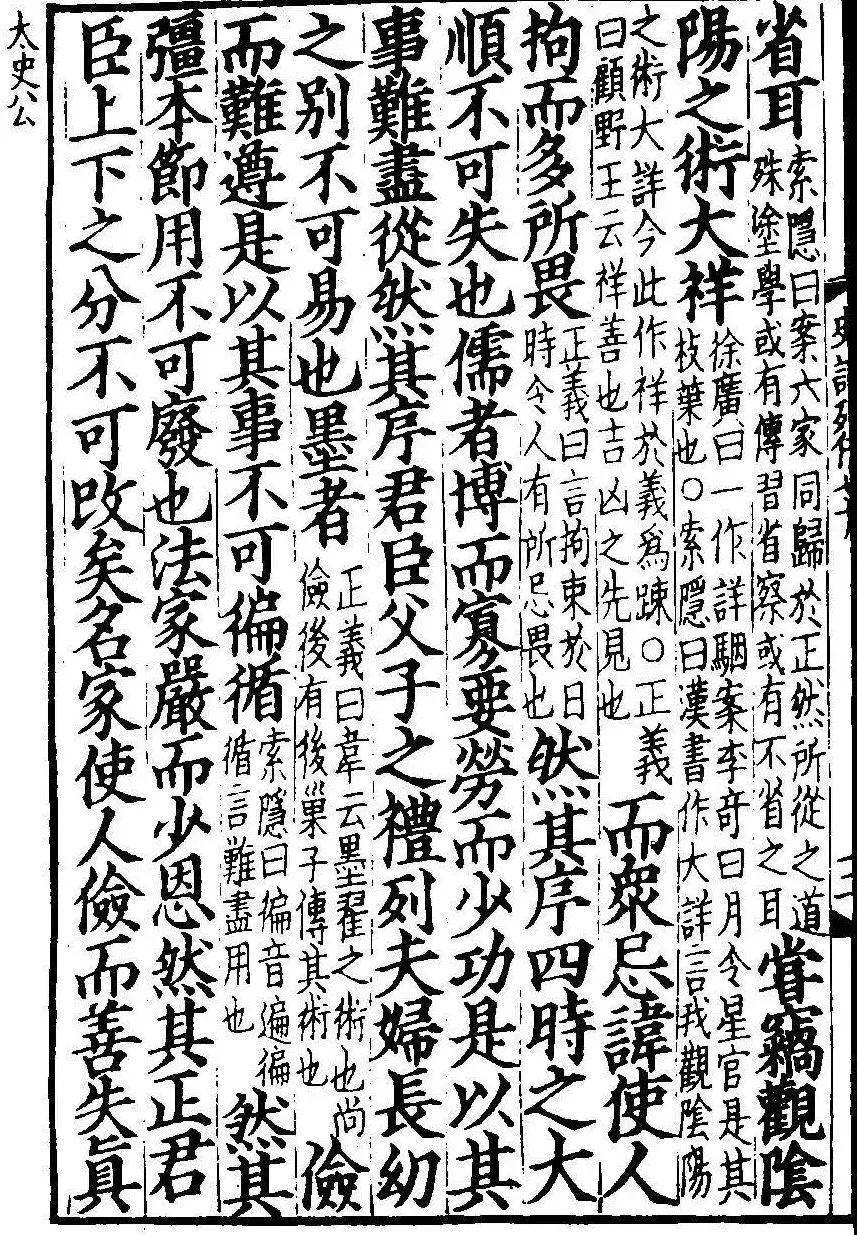 省耳索隱曰案六家同歸於正然所從之道殊塗學或有傳習省察或有不省之耳嘗竊觀陰
陽之術大祥徐廣曰一作詳駰案李奇曰月令星官是其枝葉也○索隱曰漢書作大詳言我觀陰陽
之術大詳今此作祥於義爲踈○正義曰顧野王云祥善也吉凶之先見也而衆忌諱使人
拘而多所畏正義曰言拘束於日時令人有所忌畏也然其序四時之大
順不可失也儒者博而寡要勞而少功是以其
事難盡從然其序君臣父子之禮列夫婦長幼
之别不可易也墨者正義曰韋云墨翟之術也尚儉後有後巢子傳其術也儉
而難遵是以其事不可徧循索隱曰徧音遍徧循言難盡用也然其
彊本節用不可廢也法家嚴而少恩然其正君
臣上下之分不可改矣名家使人儉而善失眞
太史公